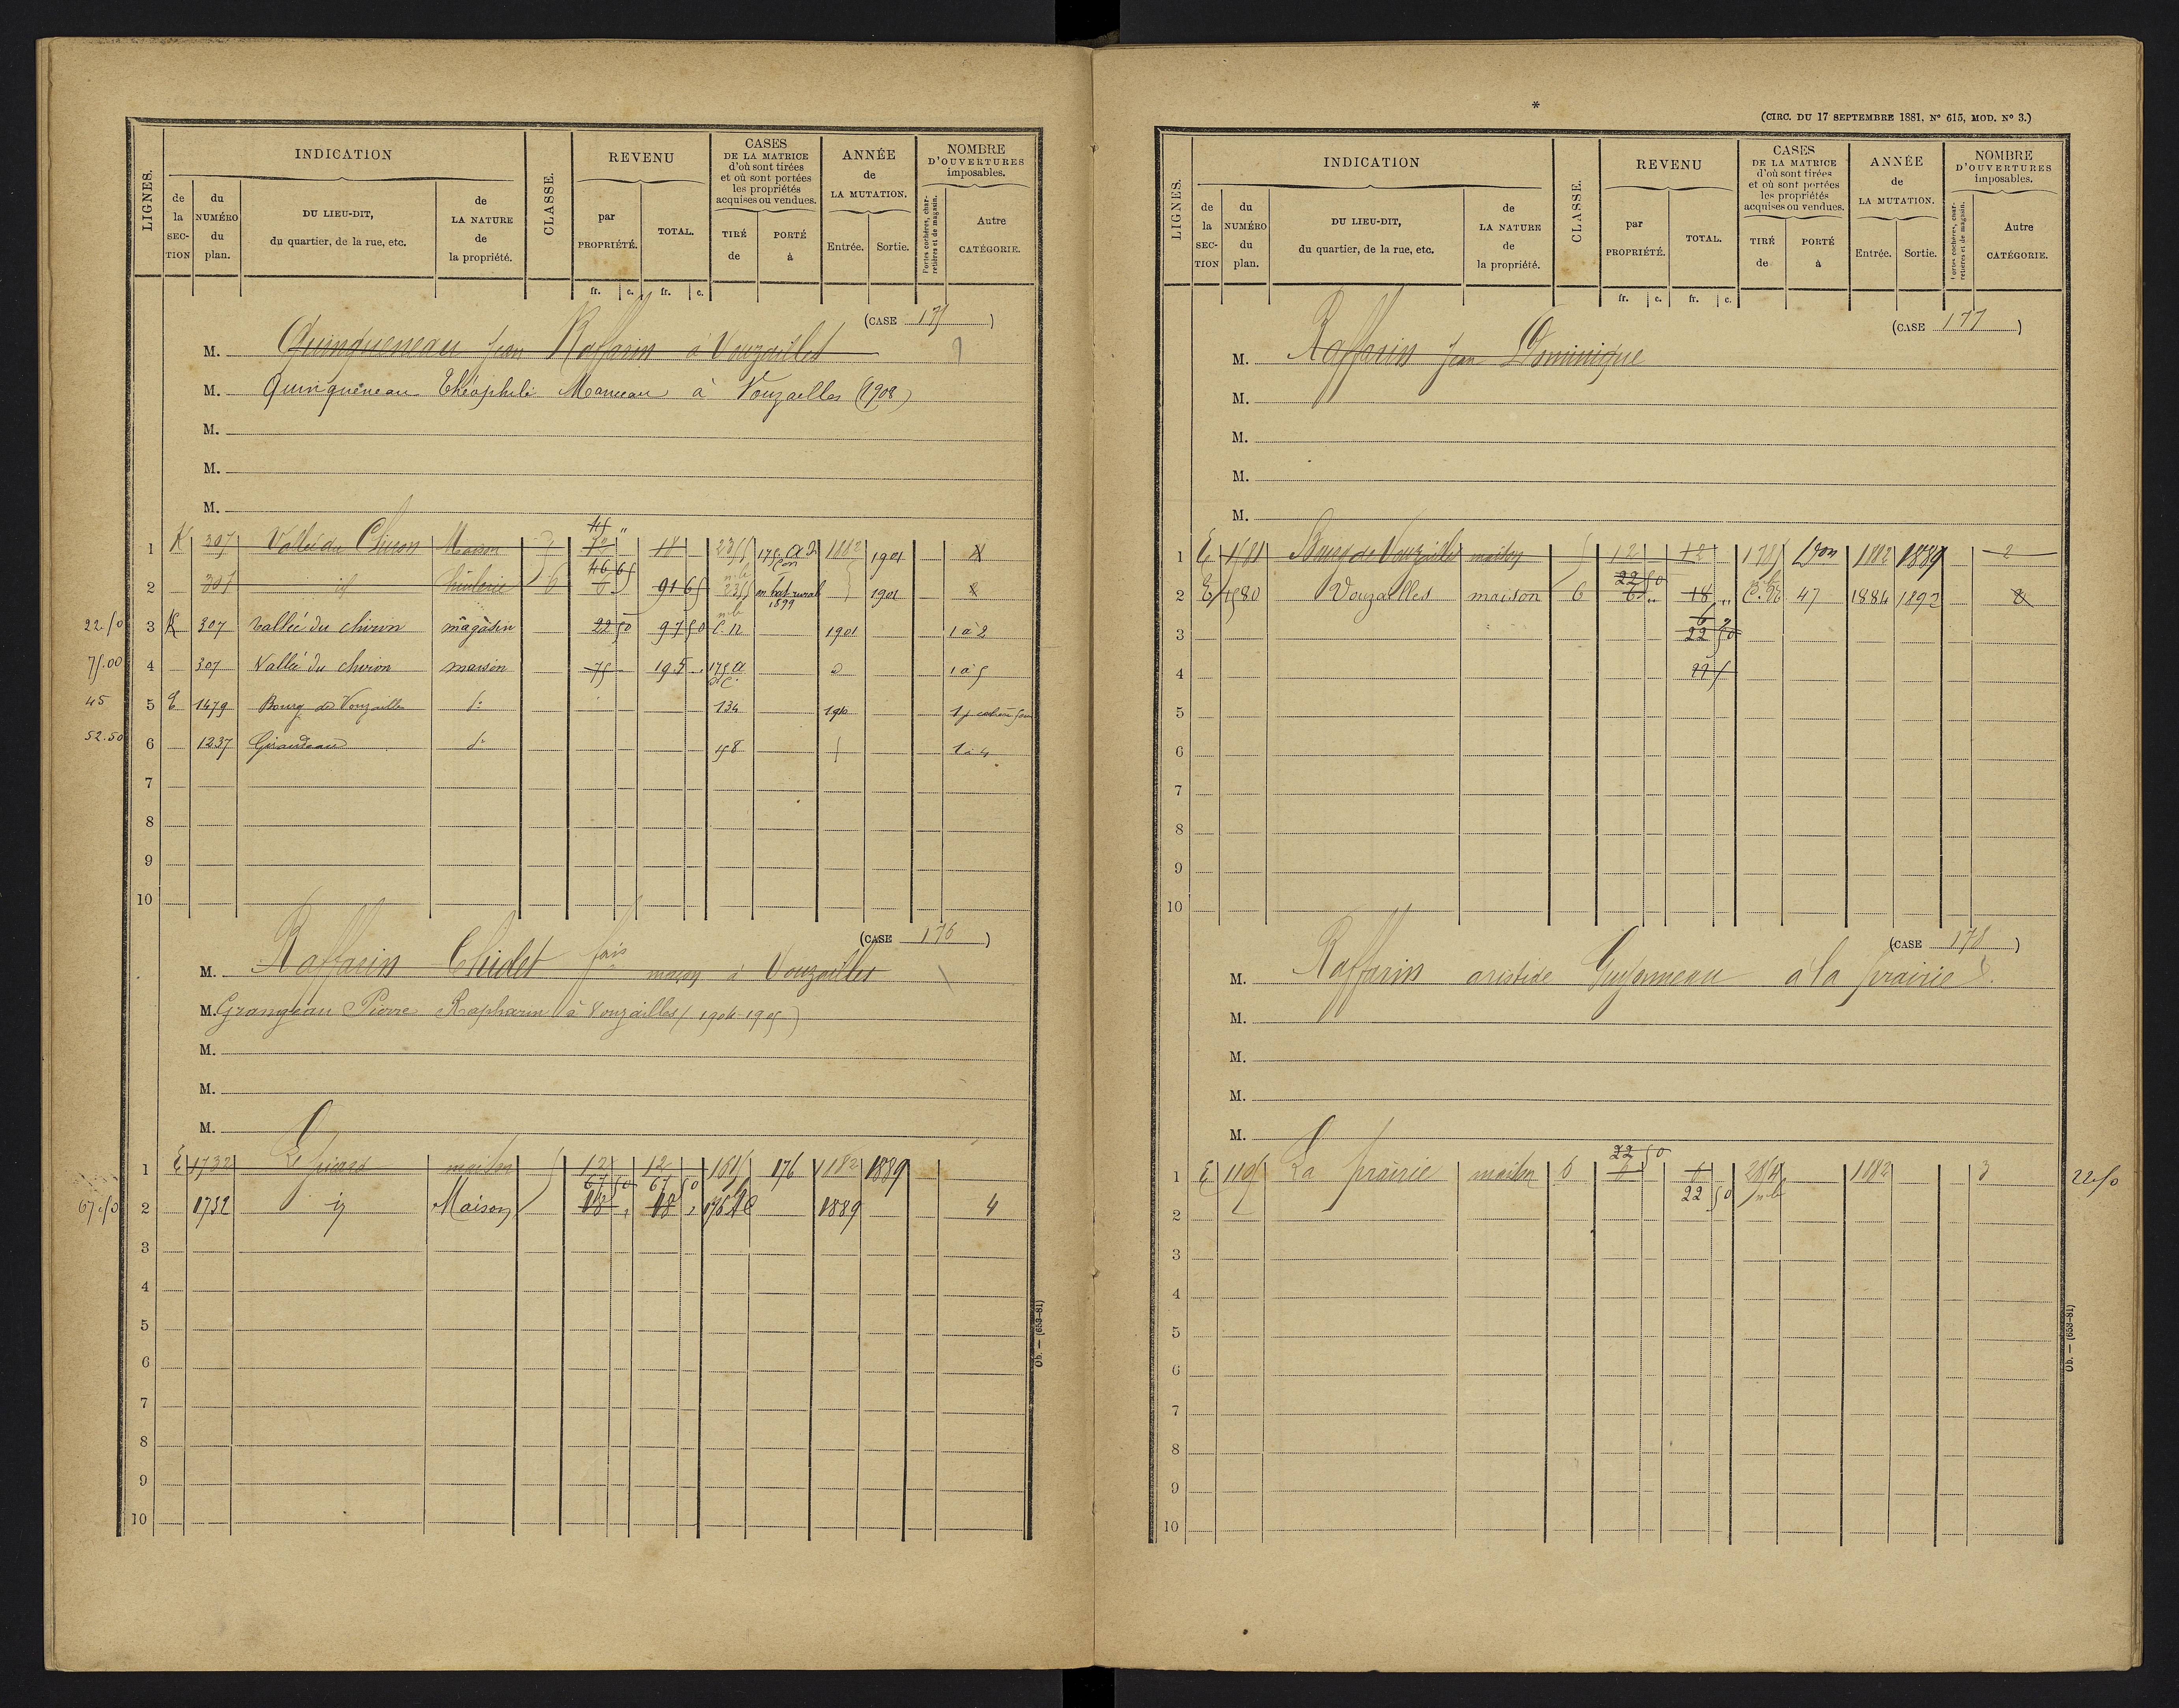 LIGNES.
INDICATION
de la SECTION
du NUMÉRO du plan.
DU LIEU-DIT, du quartier, de la rue, etc.
de LA NATURE de la propriété.
CLASSE.
REVENU
par PROPRIÉTÉ.
TOTAL.
fr. c. fr. c.
CASES DE LA MATRICE d'où sont tirées et où sont portées les propriétés acquises ou vendues.
TIRÉ de
PORTÉ à
ANNÉE de LA MUTATION.
Entrée. Sortie.
NOMBRE D'OUVERTURES imposables.
Portes cochères, charretières et de magasin.
Autre CATÉGORIE.
(CASE 175)
M. Quinqueneau Jean Raffarin à Vouzailles
M. Quinqueneau Théophile Manceau à Vouzailles (1908)
M.
M.
M.
1 K 307 Vallée du Chiron Maison 18 1882 1901
2 307 id huilerie 6 91 65 1899 1901
22.50 3 K 307 Vallée du chiron magasin 22 50 97 50 C.N 1901 1 à 2
75.00 4 307 Vallée du chiron maison 75 195 175 a 1 à 5
45 5 E 1479 Bourg de Vouzailles d° 134
52.50 6 1237 Giraudeau d° 1 à 4
7
8
9
10
(CASE 176)
M. Raffarin Chidet fois maçon à Vouzailles
M. Grangeau Pierre Rapharin à Vouzailles (1904-1905)
M.
M.
M.
1 E 1732 Le picard maison 5 12 12 1815 176 1882 1889
67 50 67 50
67.50 2 1732 id Maison 18 18 1889 4
3
4
5
6
7
8
9
10
Ob. — (653-81)
*
(CIRC. DU 17 SEPTEMBRE 1881, N° 615, MOD. N° 3.)
LIGNES.
INDICATION
de la SECTION
du NUMÉRO du plan.
DU LIEU-DIT, du quartier, de la rue, etc.
de LA NATURE de la propriété.
CLASSE.
REVENU
par PROPRIÉTÉ.
TOTAL.
fr. c. fr. c.
CASES DE LA MATRICE d'où sont tirées et où sont portées les propriétés acquises ou vendues.
TIRÉ de
PORTÉ à
ANNÉE de LA MUTATION.
Entrée. Sortie.
NOMBRE D'OUVERTURES imposables.
Portes cochères, charretières et de magasin.
Autre CATÉGORIE.
(CASE 177)
M. Raffarin Jean Dominique
M.
M.
M.
M.
1 E 1581 Bourg de Vouzailles maison 5 12 12 1785 Don 1882 1889 2
22 50
2 E 1580 Vouzailles maison 6 6 18 47 1884 1892
6
3 22 50
4
5
6
7
8
9
10
(CASE 178)
M. Raffarin aristide Guyonneau à la prairie
M.
M.
M.
M.
22 50
1 E 1195 La prairie maison 6 6 6 1882 3 22.50
22 50
2
3
4
5
6
7
8
9
10
Ob. — (653-81)